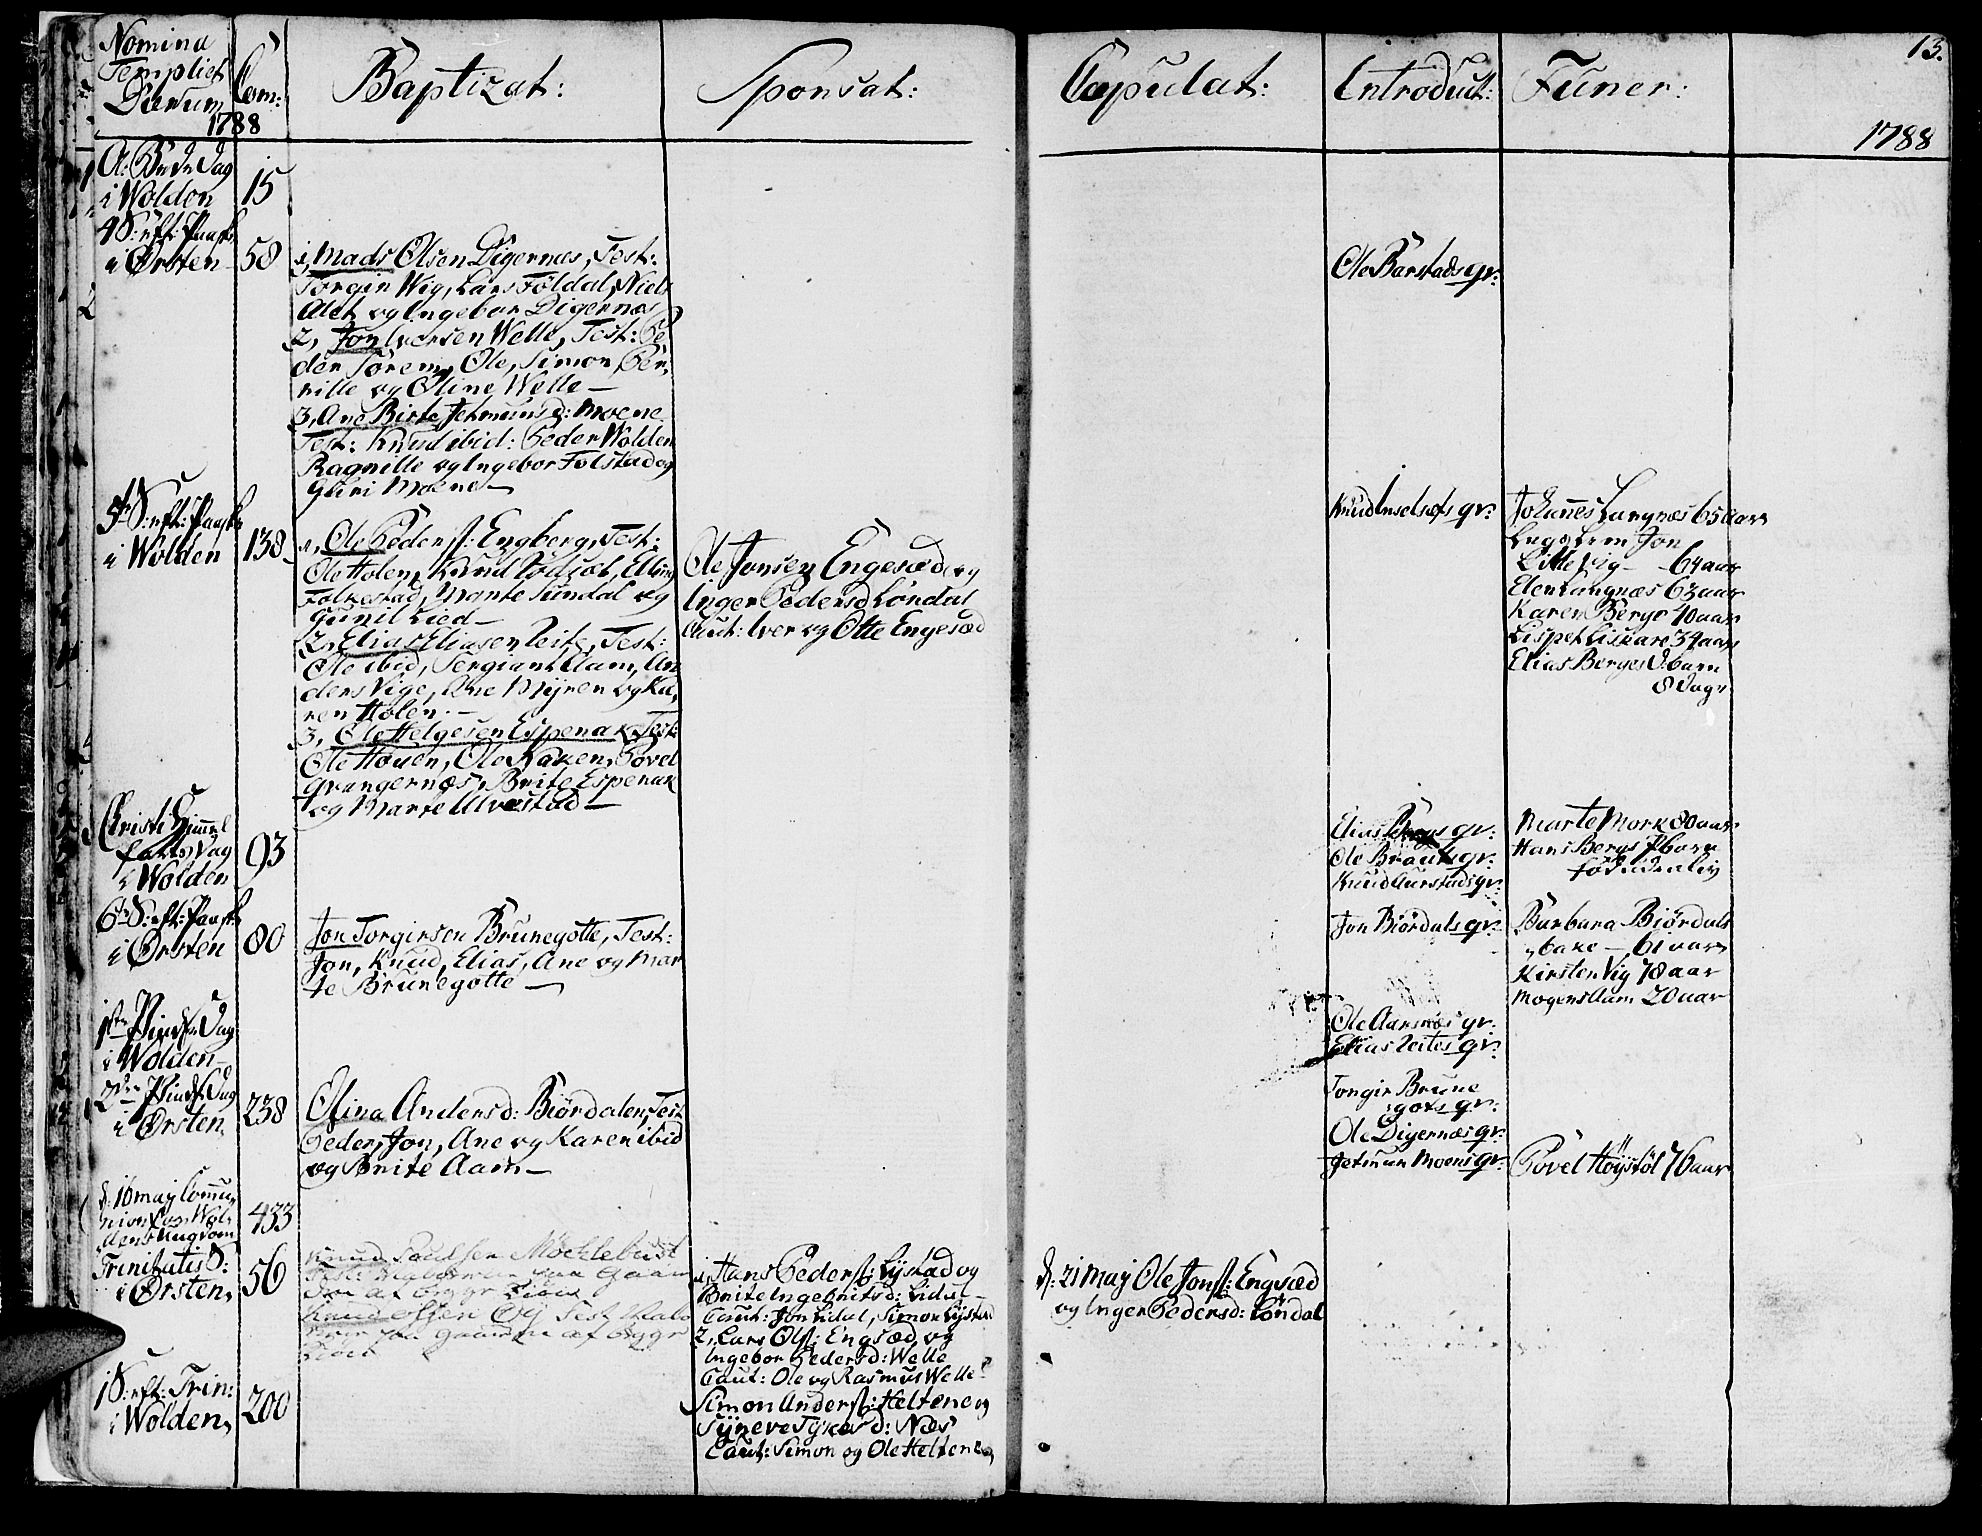 Nomina
Templi et
Dierum
1788
Com:
Baptizat:
Sponsat:
Copulat:
Introduct:
Funer:
13.
1788
A: Dag
i Wolden
15
4 S: eft: Paaske
i Ørsten
58
1, Mads Olsen Digernæs, Test:
Wig, Lars Foldal, Niels
og Ingebor Digernæs
2, Jon Iversen Welle, Test: Pe
der Torem, Ole, Simon, Per,
nille og Oline Welle —
3, Ane Birte Jetmunsd: Moene
Test: Knud ibid: Peder Wolden
Ragnille og Ingebor Folstad og
Guri Moene —
Ole Barstads gr:
5te S: eft: Paaske
i Wolden
138
1, Ole Peders: Engberg, Test:
Ole Holen, Knud Elling
Folkestad, Marte Sundal og
Gunil Lied —
2, Elias Eliasen Leite, Test:
Ole ibid, Sergiant Aam, An
ders Vige, Ane Myren og Ka,
ren Holen. —
3, Ole Helgesen Espenak Test:
Ole Hoven, Ole Kaxen, Povel
Grangernæs, Brite Espenak
og Marte Ulvestad —
Ole Jonsen Engesæd og
Inger Pedersd Løndal
Caut: Iver og Otte Engesæd
Knud gr:
Johannes Langnæs 65 aar
Jon
64 aar
Elen Langnæs 63 aar
Karen Berge 40 aar
Lispet Liskare 34 aar
Elias Berges Dbarn
8 dage
Christi Himmel
farts Dag
i Wolden
93
Elias Bergs gr:
Ole gr:
Knud Aurstads gr:
Marte Mork 80 aar
Hans Bergs Pbarn
fød uden liv
6te S: eft: Paaske
i Ørsten
80
Jon Torgirsen Brunegotte, Test:
Jon, Knud, Elias, Ane og Mar
te Brunegotte —
Jon Biørdals gr:
Barbara Biørdals
bake — 61 aar
Kirsten Vig 78 aar
Mogens Aam 20 aar
1ste Pindse Dag
i Wolden —
Ole Aarsnæs gr:
Elias Leites gr:
2den Pindse Dag
i Ørsten
238
Olina Andersd: Biørdalen, Test
Peder, Jon, Ane og Karen ibid
og Brite Aam —
Torgir Brune
gots gr:
Ole Digernæs gr:
Jetmun Moens gr:
Povel Høystøl 76 aar
d: 16 may Comu,
nion for Wol,
dens Ungdom
433
Trinitatis S:
i Ørsten,
56
Knud Poulsen Møchlebust
Knud Olsen Test
1, Hans Peders: Lystad og
Brite Ingebritsd: Lidal —
Caut: Jon Lidal, Simon Lystad
2, Lars Ols: Engsæd og
Ingebor Pedersd: Welle
Caut: Ole og Rasmus Welle
d: 21 May Ole Jons: Engsæd
og Inger Pedersd: Løndal
1 S: eft: Trin:
i Wolden,
200
Simon Anders: Heltene og
Synneve Sykesd: Næs
Caut: Simon og Ole Heltene